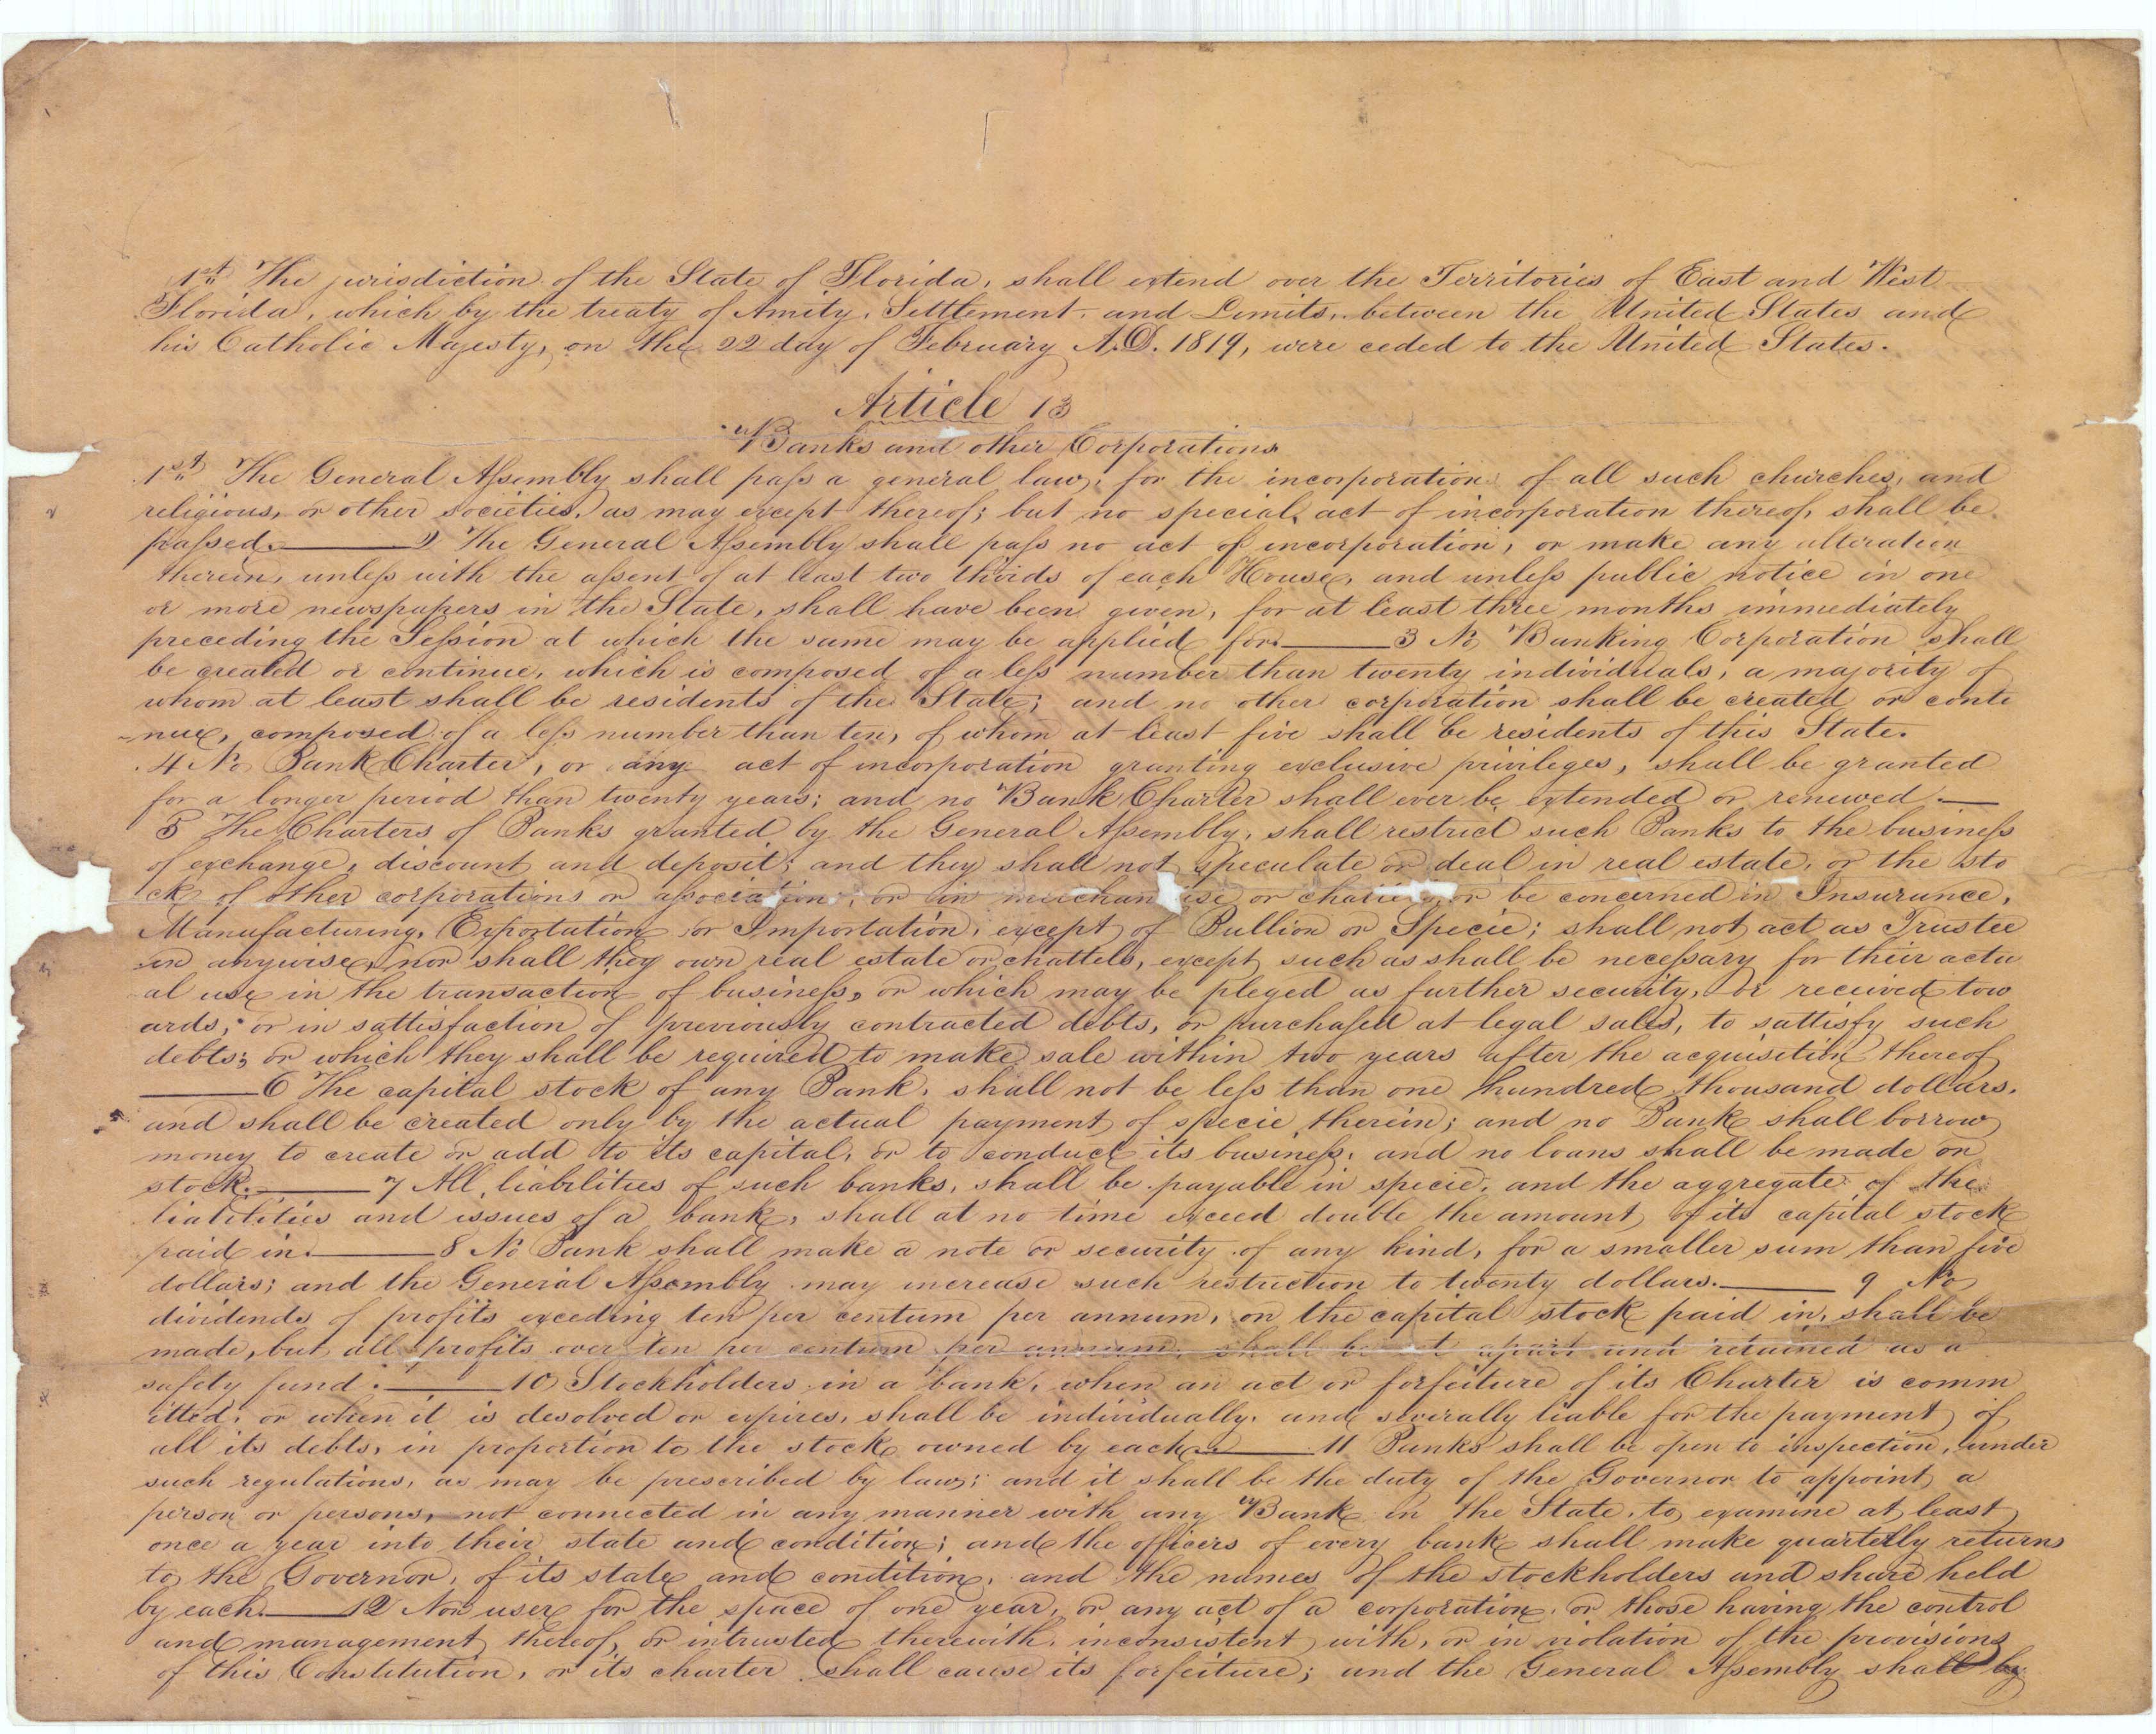 1st The jurisdiction of the State of Florida, shall extend over the Territories of East and West
Florida, which by the treaty of Amity, Settlement, and Limits, between the United States and
his Catholic Majesty, on the 22 day of February A.D. 1819, were ceded to the United States.
Article 13
Banks and other Corporations
1st The General Assembly shall pass a general law, for the incorporation of all such churches, and
religious, or other societies, as may except thereof; but no special act of incorporation thereof, shall be
passed. 2 The General Assembly shall pass no act of incorporation, or make any alteration
therein, unless with the assent of at least two thirds of each House, and unless public notice in one
or more newspapers in the State, shall have been given, for at least three months immediately
preceding the Session at which the same may be applied for. 3 No Banking Corporation shall
be created or continue, which is composed of a less number than twenty individuals, a majority of
whom at least shall be residents of the State; and no other corporation shall be created or conti
-nue, composed of a less number than ten, of whom at least five shall be residents of this State.
4 No Bank Charter, or any act of incorporation granting exclusive privileges, shall be granted
for a longer period than twenty years; and no Bank Charter shall ever be extended or renewed.
5 The Charters of Banks granted by the General Assembly, shall restrict such Banks to the business
of exchange, discount and deposit; and they shall not speculate or deal in real estate, or the sto
ck of other corporations or associations, or in merchan ise or or be concerned in Insurance,
Manufacturing, Exportation or Importation, except of Bullion or Specie; shall not act as Trustee
in anywise, nor shall they own real estate or chattels, except such as shall be necessary for their actu
al use in the transaction of business, or which may be pleged as further security, or received tow
ards, or in sattisfaction of previously contracted debts, or purchased at legal sales, to sattisfy such
debts; or which they shall be required to make sale within two years after the acquisition thereof
6 The capital stock of any Bank, shall not be less than one hundred thousand dollars,
and shall be created only by the actual payment of specie therein; and no Bank shall borrow
money to create or add to its capital, or to conduct its business, and no loans shall be made on
stock. 7 All liabilities of such banks, shall be payable in specie, and the aggregate of the
liabilities and issues of a bank, shall at no time exceed double the amount of its capital stock
paid in. 8 No Bank shall make a note or security of any kind, for a smaller sum than five
dollars; and the General Assembly may increase such restriction to twenty dollars. 9 No
dividends of profits exceeding ten per centum per annum, on the capital stock paid in, shall be
made, but all profits over ten per centum per annum, shall be set apart and retained as a
safety fund. 10 Stockholders in a bank, when an act or forfeiture of its Charter is comm
itted, or when it is desolved or expires, shall be individually, and severally liable for the payment of
all its debts, in proportion to the stock owned by each. 11 Banks shall be open to inspection, under
such regulations, as may be prescribed by law; and it shall be the duty of the Governor to appoint a
person or persons, not connected in any manner with any Bank in the State, to examine at least
once a year into their state and condition; and the officers of every bank shall make quarterly returns
to the Governor, of its state and condition, and the names of the stockholders and share held
by each. 12 Non user for the space of one year, or any act of a corporation, or those having the control
and management thereof, or intrusted therewith, inconsistent with, or in violation of the provisions
of this Constitution, or its charter shall cause its forfeiture; and the General Assembly shall by